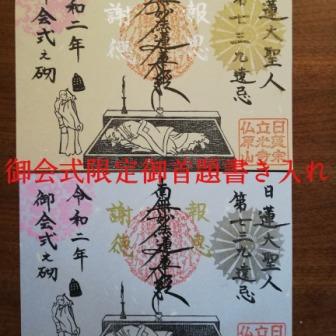 日蓮大聖人
第七三九遠忌
報恩
南無妙法蓮華経
謝徳
令和二年
御会式之砌
日蓮宗
立光山
仏原寺
御会式限定御首題書き入れ
日蓮大聖人
第七三九遠忌
報恩
南無妙法蓮華経
謝徳
令和二年
御会式之砌